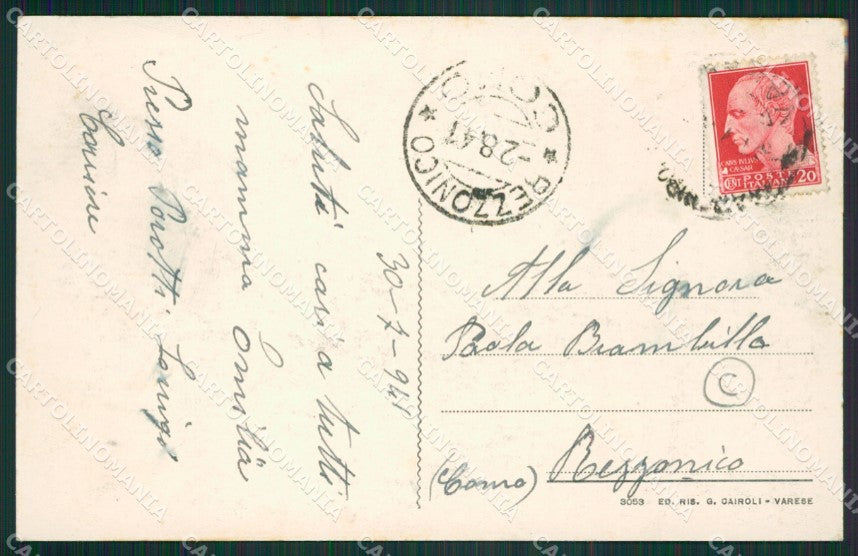 30-7-941
Saluti cari a tutti
mamma Emilia
Presso Porotti Luigi
REZZONICO
-2.8.41
CAIVS IVLIVS
CAESAR
CENT. 20
POSTE
ITALIANE
Alla Signora
Paola Brambilla
C
Rezzonico
(Como)
3053 ED. RIS. G. CAIROLI - VARESE
CARTOLINOMANIA